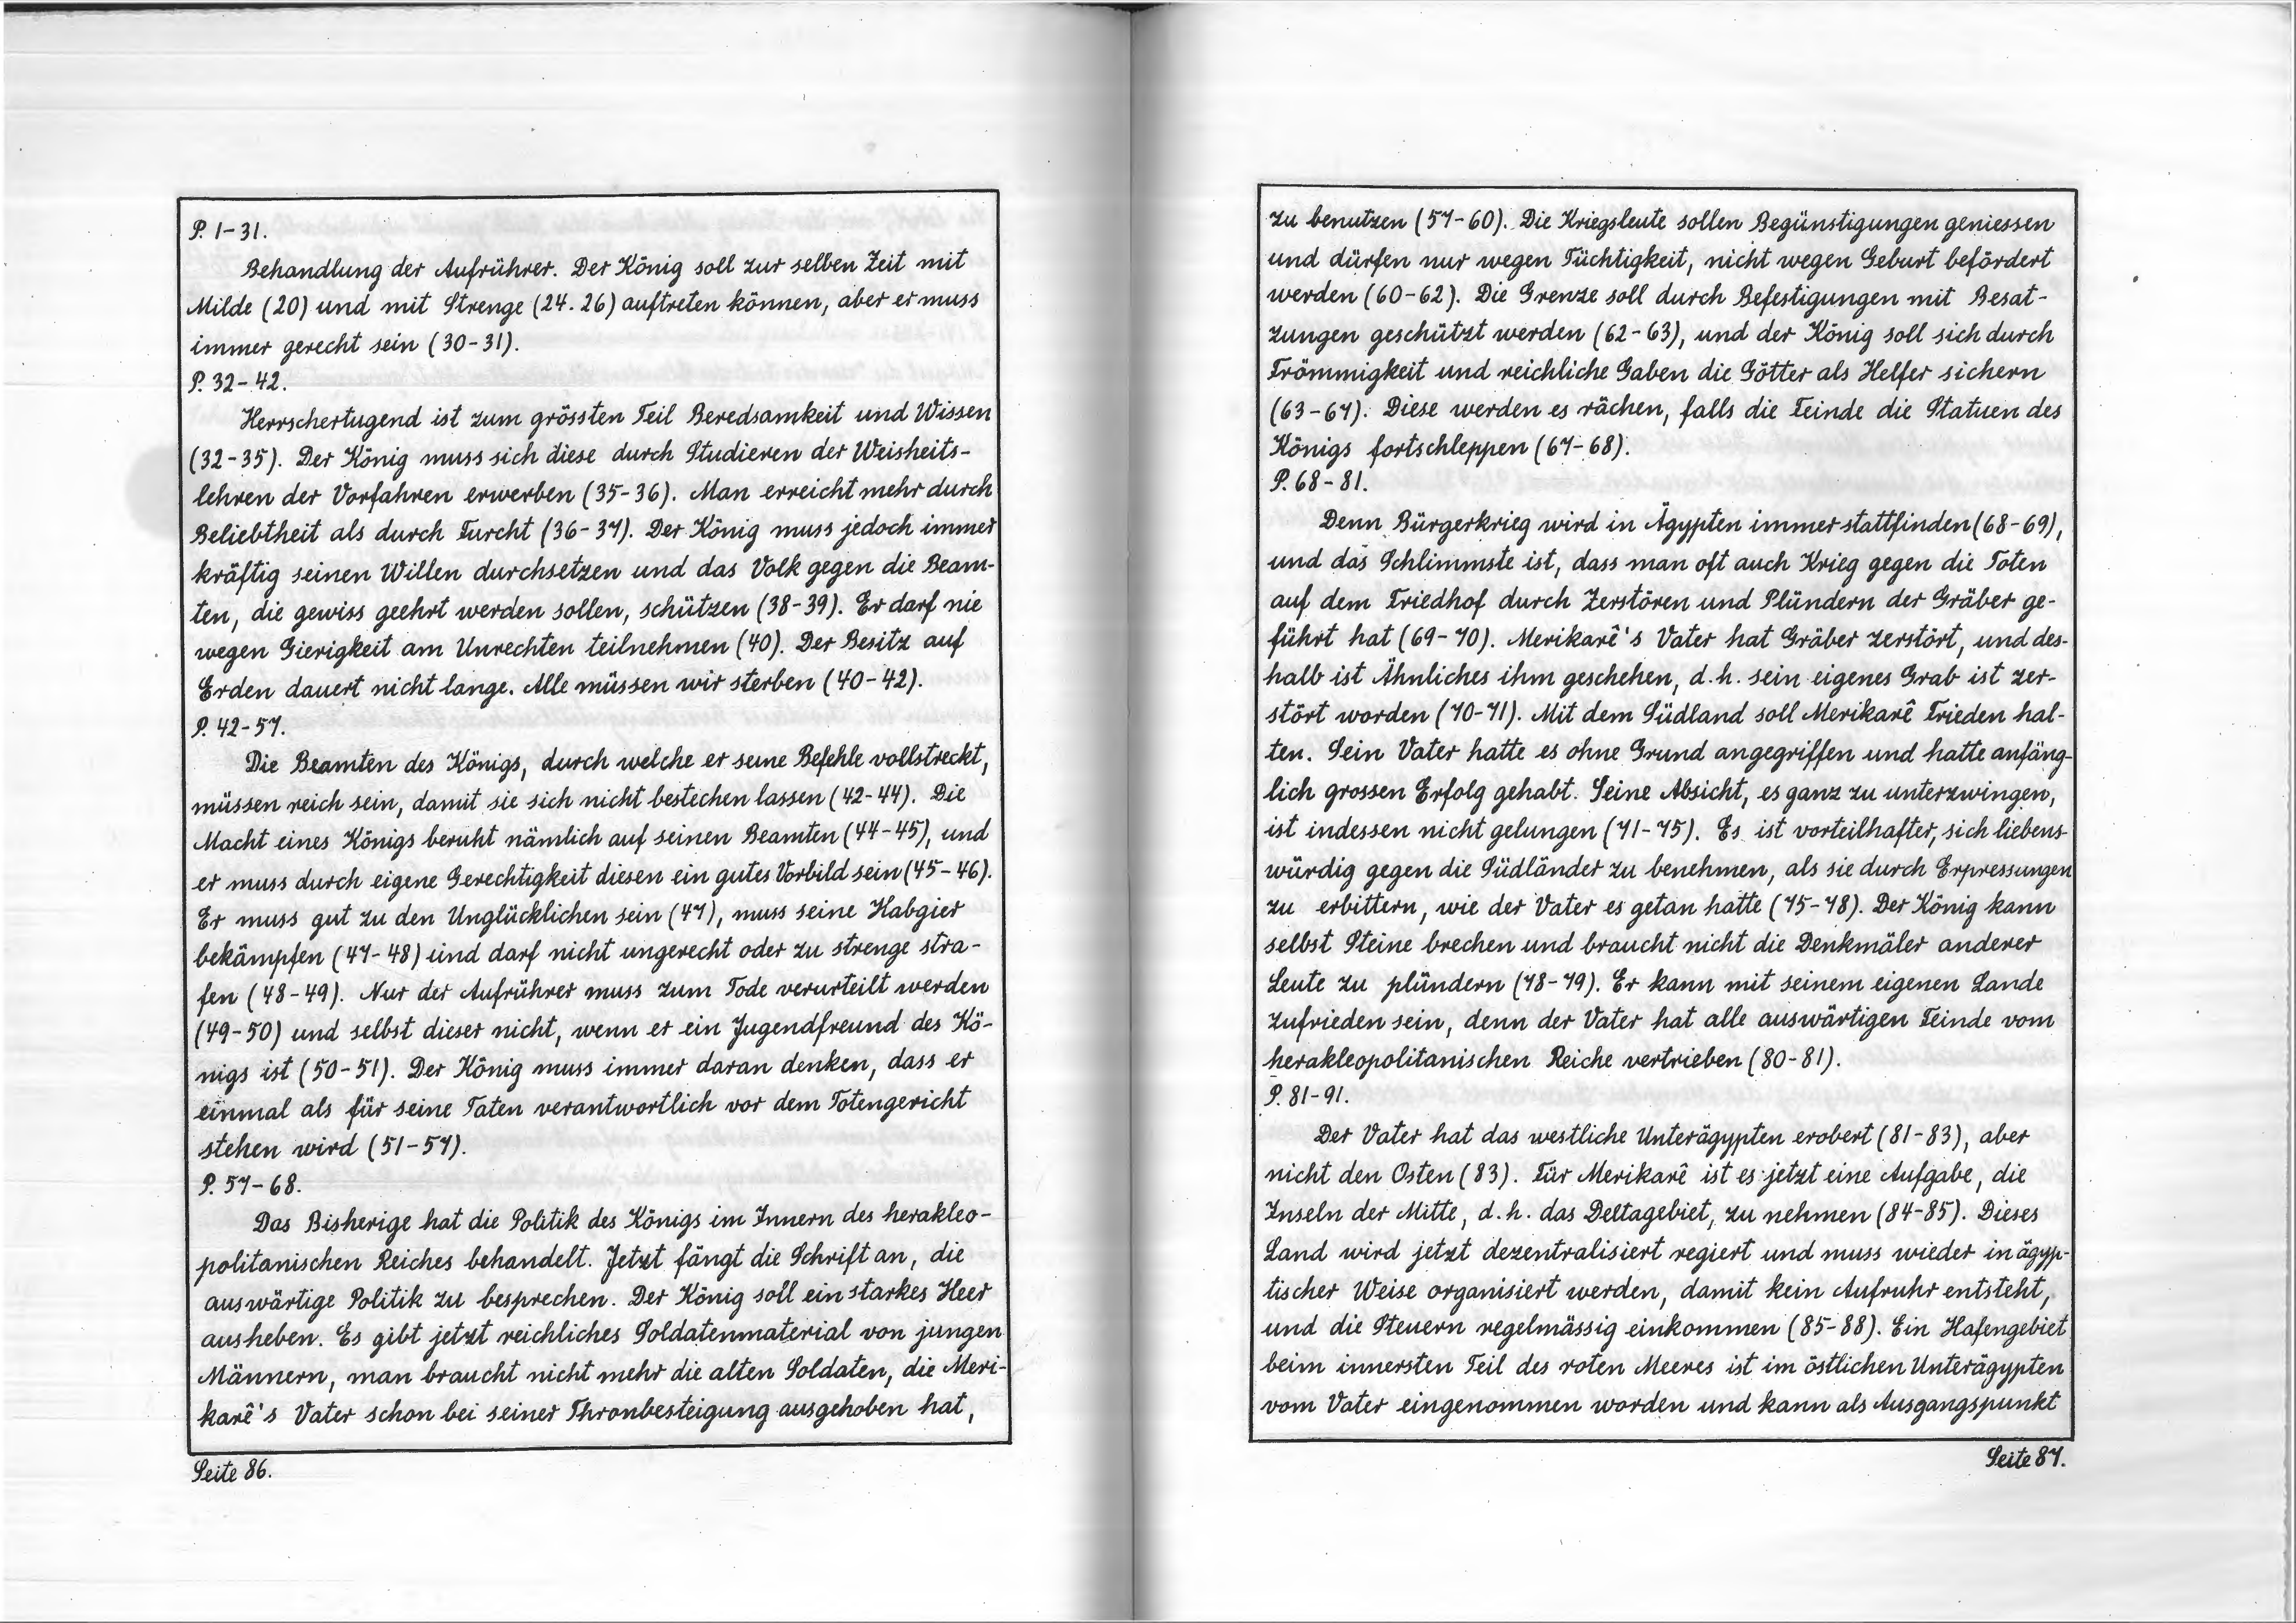 P. 1-31.
Behandlung der Aufrührer. Der König soll zur selben Zeit mit
Milde (20) und mit Strenge (24. 26) auftreten können, aber er muss
immer gerecht sein (30-31).
P. 32-42.
Herrschertugend ist zum grössten Teil Beredsamkeit und Wissen
(32-35). Der König muss sich diese durch Studieren der Weisheits-
lehren der Vorfahren erwerben (35-36). Man erreicht mehr durch
Beliebtheit als durch Furcht (36-37). Der König muss jedoch immer
kräftig seinen Willen durchsetzen und das Volk gegen die Beam-
ten, die gewiss geehrt werden sollen, schützen (38-39). Er darf nie
wegen Gierigkeit am Unrechten teilnehmen (40). Der Besitz auf
Erden dauert nicht lange. Alle müssen wir sterben (40-42).
P. 42-57.
Die Beamten des Königs, durch welche er seine Befehle vollstreckt,
müssen reich sein, damit sie sich nicht bestechen lassen (42-44). Die
Macht eines Königs beruht nämlich auf seinen Beamten (44-45), und
er muss durch eigene Gerechtigkeit diesen ein gutes Vorbild sein (45-46).
Er muss gut zu den Unglücklichen sein (47), muss seine Habgier
bekämpfen (47-48) und darf nicht ungerecht oder zu strenge stra-
fen (48-49). Nur der Aufrührer muss zum Tode verurteilt werden
(49-50) und selbst dieser nicht, wenn er ein Jugendfreund des Kö-
nigs ist (50-51). Der König muss immer daran denken, dass er
einmal als für seine Taten verantwortlich vor dem Totengericht
stehen wird (51-57).
P. 57-68.
Das Bisherige hat die Politik des Königs im Innern des herakleo-
politanischen Reiches behandelt. Jetzt fängt die Schrift an, die
auswärtige Politik zu besprechen. Der König soll ein starkes Heer
ausheben. Es gibt jetzt reichliches Soldatenmaterial von jungen
Männern, man braucht nicht mehr die alten Soldaten, die Meri-
karê's Vater schon bei seiner Thronbesteigung ausgehoben hat,
Seite 86.
zu benutzen (57-60). Die Kriegsleute sollen Begünstigungen geniessen
und dürfen nur wegen Tüchtigkeit, nicht wegen Geburt befördert
werden (60-62). Die Grenze soll durch Befestigungen mit Besat-
zungen geschützt werden (62-63), und der König soll sich durch
Frömmigkeit und reichliche Gaben die Götter als Helfer sichern
(63-67). Diese werden es rächen, falls die Feinde die Statuen des
Königs fortschleppen (67-68).
P. 68-81.
Denn Bürgerkrieg wird in Ägypten immer stattfinden (68-69),
und das Schlimmste ist, dass man oft auch Krieg gegen die Toten
auf dem Friedhof durch Zerstören und Plündern der Gräber ge-
führt hat (69-70). Merikarê's Vater hat Gräber zerstört, und des-
halb ist Ähnliches ihm geschehen, d.h. sein eigenes Grab ist zer-
stört worden (70-71). Mit dem Südland soll Merikarê Frieden hal-
ten. Sein Vater hatte es ohne Grund angegriffen und hatte anfäng-
lich grossen Erfolg gehabt. Seine Absicht, es ganz zu unterzwingen,
ist indessen nicht gelungen (71-75). Es ist vorteilhafter, sich liebens-
würdig gegen die Südländer zu benehmen, als sie durch Erpressungen
zu erbittern, wie der Vater es getan hatte (75-78). Der König kann
selbst Steine brechen und braucht nicht die Denkmäler anderer
Leute zu plündern (78-79). Er kann mit seinem eigenen Lande
zufrieden sein, denn der Vater hat alle auswärtigen Feinde vom
herakleopolitanischen Reiche vertrieben (80-81).
P. 81-91.
Der Vater hat das westliche Unterägypten erobert (81-83), aber
nicht den Osten (83). Für Merikarê ist es jetzt eine Aufgabe, die
Inseln der Mitte, d.h. das Deltagebiet, zu nehmen (84-85). Dieses
Land wird jetzt dezentralisiert regiert und muss wieder in ägyp-
tischer Weise organisiert werden, damit kein Aufruhr entsteht,
und die Steuern regelmässig einkommen (85-88). Ein Hafengebiet
beim innersten Teil des roten Meeres ist im östlichen Unterägypten
vom Vater eingenommen worden und kann als Ausgangspunkt
Seite 87.